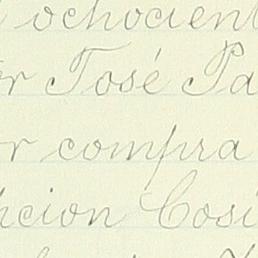 ochocient
r José Pa
r compra
hcion Cosi